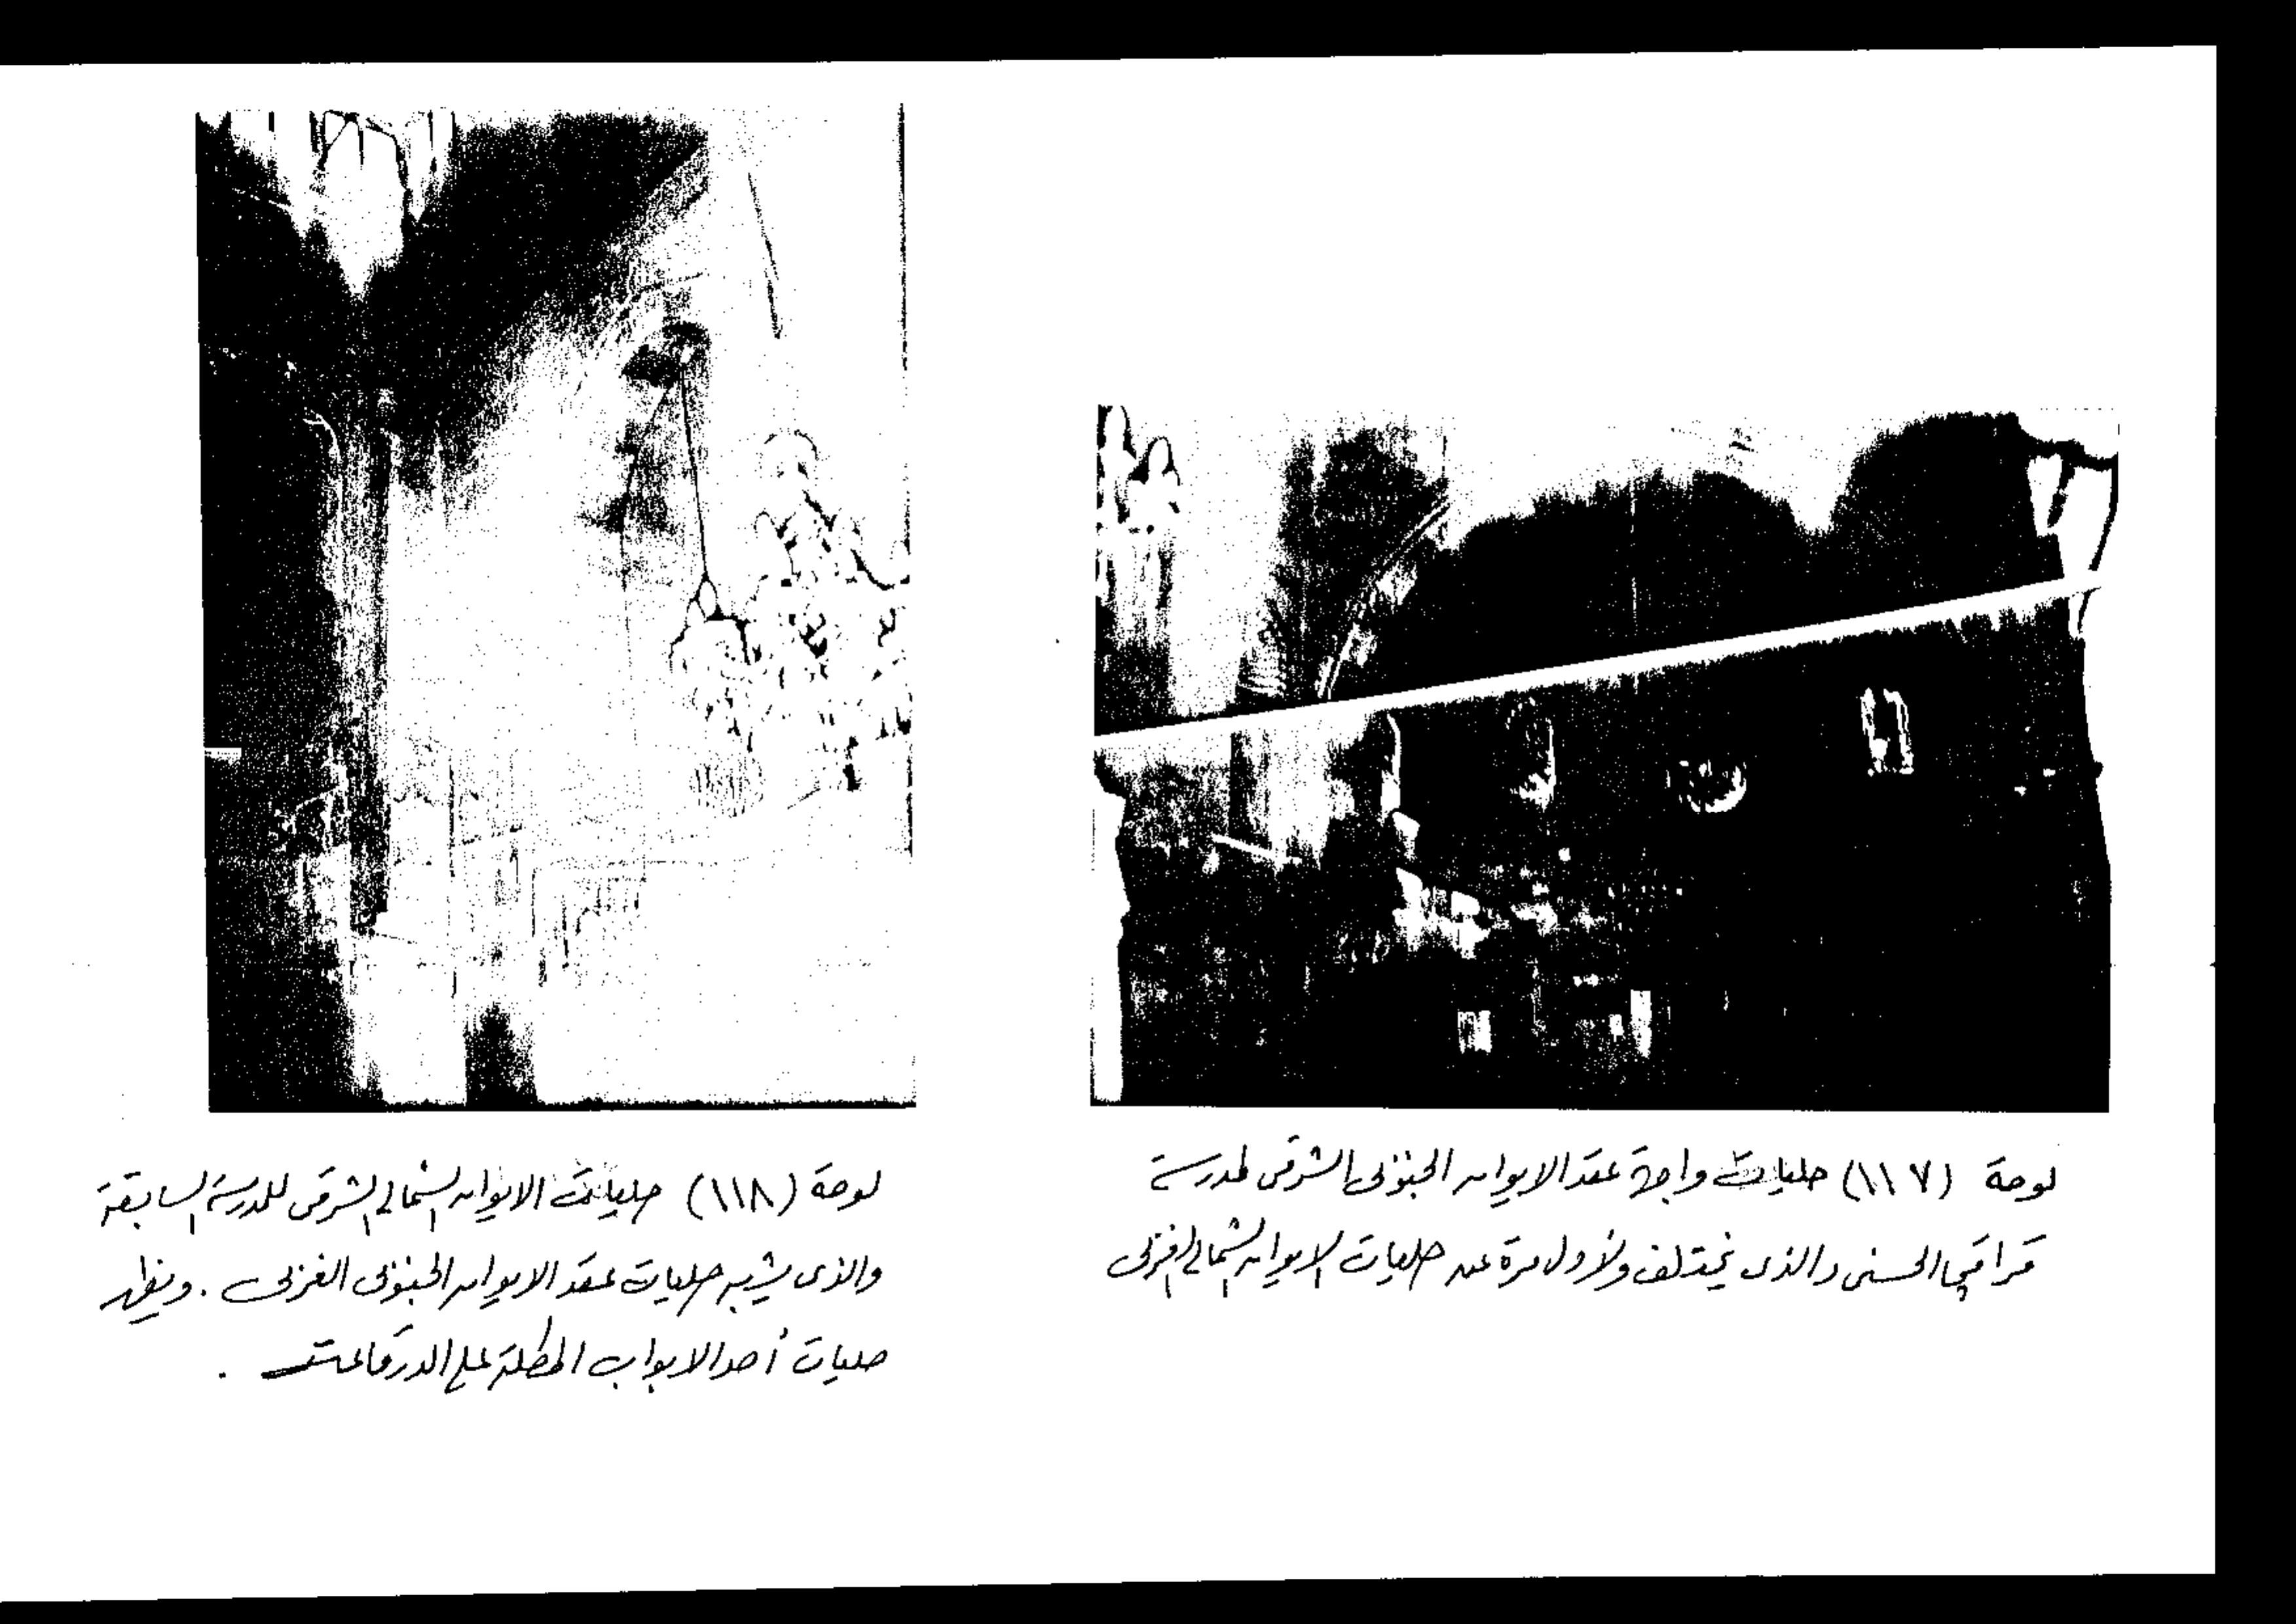 لوحة (١١٧) حليات واجهة عقد الايوان الجنوبى الشرقى لمدرسة
قراقجا الحسنى والذى يختلف ولأول مرة عن حليات الايوان الشمالى الغربى
لوحة (١١٨) حليات الايوان الشمالى الشرقى للمدرسة السابقة
والذى يشبه حليات عقد الايوان الجنوبى الغربى . ويظهر
حليات أحد الابواب المطلة على الدرقاعة .